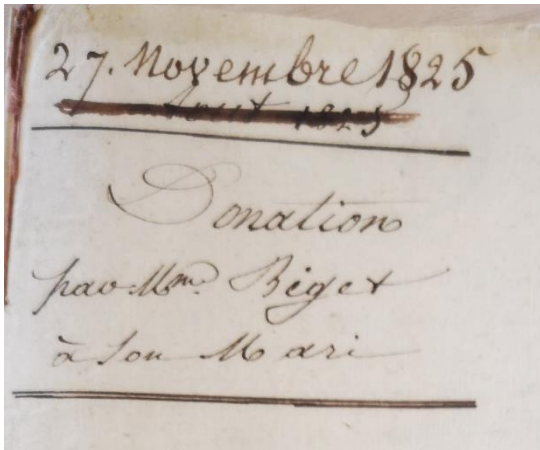 27. Novembre 1825
Aout 1825
Donation
par Mme Biget
à son Mari